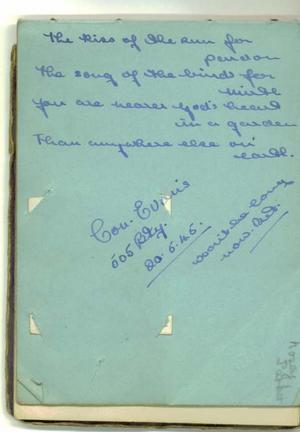 The Kiss of the sun for
pardon
The song of the birds for
mirth
You are nearer God's heart
in a garden
Than anywhere else on
earth.
Con. Evans
605 Bty.
20.5.45.
won't be long
now.